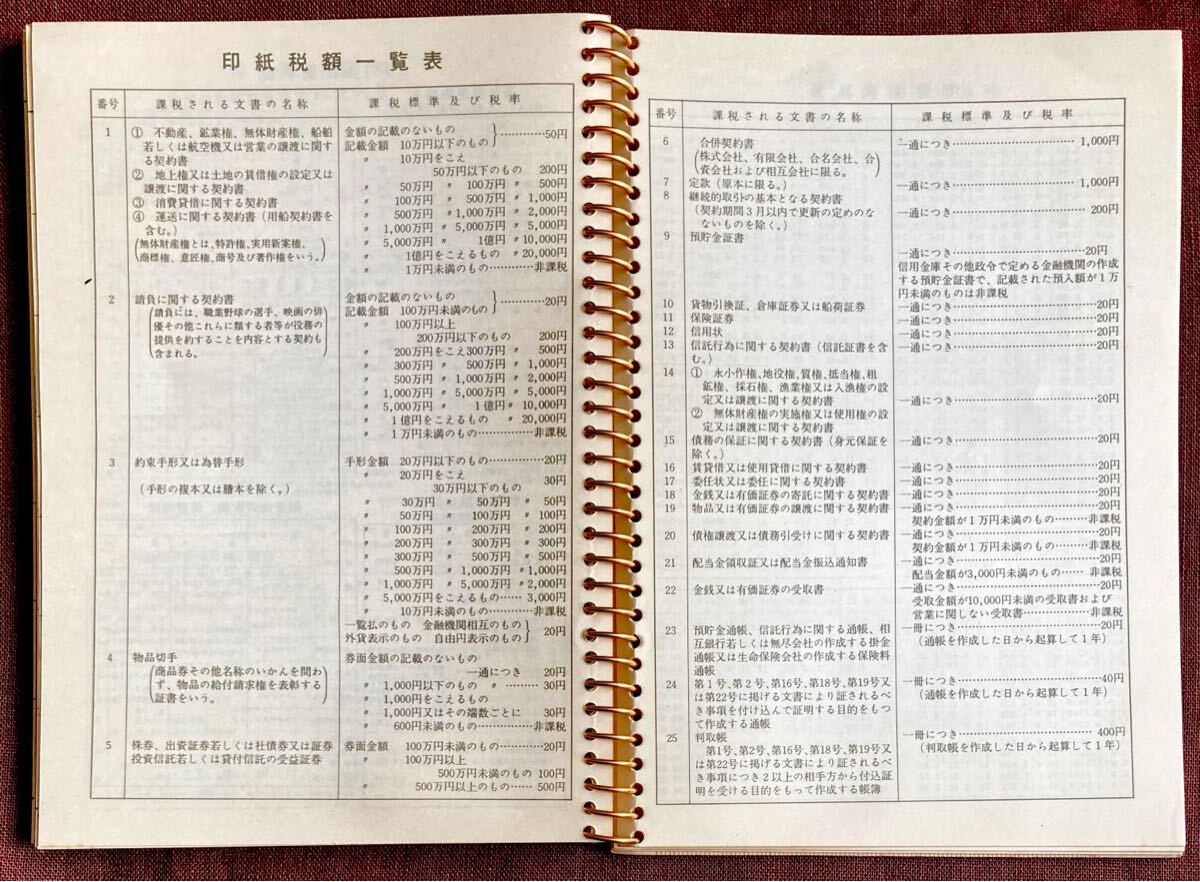 印紙税額一覧表
番号 課税される文書の名称 課税標準及び税率
1 ① 不動産、鉱業権、無体財産権、船舶 金額の記載のないもの
若しくは航空機又は営業の譲渡に関す 記載金額 10万円以下のもの}…………50円
る契約書 〃 10万円をこえ
② 地上権又は土地の賃借権の設定又は 50万円以下のもの 200円
譲渡に関する契約書 〃 50万円 〃 100万円 〃 500円
③ 消費貸借に関する契約書 〃 100万円 〃 500万円 〃 1,000円
④ 運送に関する契約書(用船契約書を 〃 500万円 〃 1,000万円 〃 2,000円
含む。) 〃 1,000万円 〃 5,000万円 〃 5,000円
(無体財産権とは、特許権、実用新案権、 〃 5,000万円 〃 1億円 〃 10,000円
商標権、意匠権、商号及び著作権をいう。) 〃 1億円をこえるもの 〃 20,000円
〃 1万円未満のもの…………非課税
2 請負に関する契約書 金額の記載のないもの
(請負には、職業野球の選手、映画の俳 記載金額 100万円未満のもの}…………20円
優その他これらに類する者等が役務の 〃 100万円以上
提供を約することを内容とする契約も 200万円以下のもの 200円
含まれる。) 〃 200万円をこえ300万円 〃 500円
〃 300万円 〃 500万円 〃 1,000円
〃 500万円 〃 1,000万円 〃 2,000円
〃 1,000万円 〃 5,000万円 〃 5,000円
〃 5,000万円 〃 1億円 〃 10,000円
〃 1億円をこえるもの 〃 20,000円
〃 1万円未満のもの…………非課税
3 約束手形又は為替手形 手形金額 20万円以下のもの…………20円
〃 20万円をこえ
(手形の複本又は謄本を除く。) 30万円以下のもの 30円
〃 30万円 〃 50万円 〃 50円
〃 50万円 〃 100万円 〃 100円
〃 100万円 〃 200万円 〃 200円
〃 200万円 〃 300万円 〃 300円
〃 300万円 〃 500万円 〃 500円
〃 500万円 〃 1,000万円 〃 1,000円
〃 1,000万円 〃 5,000万円 〃 2,000円
〃 5,000万円をこえるもの…… 3,000円
〃 10万円未満のもの…………非課税
一覧払のもの 金融機関相互のもの
外貨表示のもの 自由円表示のもの} 20円
4 物品切手 券面金額の記載のないもの
(商品券その他名称のいかんを問わ 一通につき 20円
ず、物品の給付請求権を表彰する 〃 1,000円以下のもの 〃 ……… 30円
証書をいう。) 〃 1,000円をこえるもの
〃 1,000円又はその端数ごとに 30円
〃 600円未満のもの…………非課税
5 株券、出資証券若しくは社債券又は証券 券面金額 100万円未満のもの…………20円
投資信託若しくは貸付信託の受益証券 〃 100万円以上
500万円未満のもの 100円
〃 500万円以上のもの…… 500円
番号 課税される文書の名称 課税標準及び税率
6 合併契約書 一通につき………………………… 1,000円
(株式会社、有限会社、合名会社、合
資会社および相互会社に限る。)
7 定款(原本に限る。) 一通につき………………………… 1,000円
8 継続的取引の基本となる契約書
(契約期間3月以内で更新の定めのな 一通につき………………………… 200円
いものを除く。)
9 預貯金証書
一通につき…………………………20円
信用金庫その他政令で定める金融機関の作成
する預貯金証書で、記載された預入額が1万
円未満のものは非課税
10 貨物引換証、倉庫証券又は船荷証券 一通につき…………………………20円
11 保険証券 一通につき…………………………20円
12 信用状 一通につき…………………………20円
13 信託行為に関する契約書(信託証書を含 一通につき…………………………20円
む。)
14 ① 永小作権、地役権、質権、抵当権、租
鉱権、採石権、漁業権又は入漁権の設
定又は譲渡に関する契約書 一通につき…………………………20円
② 無体財産権の実施権又は使用権の設
定又は譲渡に関する契約書
15 債務の保証に関する契約書(身元保証を 一通につき…………………………20円
除く。)
16 賃貸借又は使用貸借に関する契約書 一通につき…………………………20円
17 委任状又は委任に関する契約書 一通につき…………………………20円
18 金銭又は有価証券の寄託に関する契約書 一通につき…………………………20円
19 物品又は有価証券の譲渡に関する契約書 一通につき…………………………20円
契約金額が1万円未満のもの………非課税
20 債権譲渡又は債務引受けに関する契約書 一通につき…………………………20円
契約金額が1万円未満のもの………非課税
21 配当金領収証又は配当金振込通知書 一通につき…………………………20円
配当金額が3,000円未満のもの…… 非課税
22 金銭又は有価証券の受取書 一通につき…………………………20円
受取金額が10,000円未満の受取書および
営業に関しない受取書……………非課税
23 預貯金通帳、信託行為に関する通帳、相 一冊につき…………………………20円
互銀行若しくは無尽会社の作成する掛金 (通帳を作成した日から起算して1年)
通帳又は生命保険会社の作成する保険料
通帳
24 第1号、第2号、第16号、第18号、第19号又 一冊につき…………………………40円
は第22号に掲げる文書により証されるべ (通帳を作成した日から起算して1年)
き事項を付け込んで証明する目的をもつ
て作成する通帳
25 判取帳 一冊につき………………………… 400円
第1号、第2号、第16号、第18号、第19号又 (判取帳を作成した日から起算して1年)
は第22号に掲げる文書により証されるべ
き事項につき2以上の相手方から付込証
明を受ける目的をもって作成する帳簿